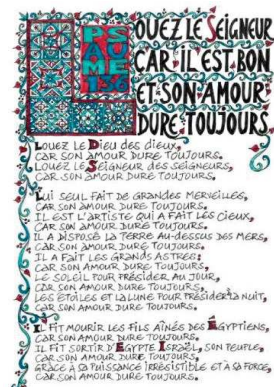 PSAUME 136
LOUEZ LE SEIGNEUR
CAR IL EST BON
ET SON AMOUR
DURE TOUJOURS.
LOUEZ LE DIEU des dieux,
CAR SON AMOUR DURE TOUJOURS.
LOUEZ LE SEIGNEUR DES SEIGNEURS,
CAR SON AMOUR DURE TOUJOURS.
LUI SEUL FAIT DE GRANDES MERVEILLES,
CAR SON AMOUR DURE TOUJOURS.
IL EST L'ARTISTE QUI A FAIT LES CIEUX,
CAR SON AMOUR DURE TOUJOURS.
IL A DISPOSÉ LA TERRE AU-DESSUS DES MERS,
CAR SON AMOUR DURE TOUJOURS.
IL A FAIT LES GRANDS ASTRES:
CAR SON AMOUR DURE TOUJOURS.
LE SOLEIL POUR PRÉSIDER AU JOUR,
CAR SON AMOUR DURE TOUJOURS,
LES ÉTOILES ET LA LUNE POUR PRÉSIDER LA NUIT,
CAR SON AMOUR DURE TOUJOURS.
IL FIT MOURIR LES FILS AÎNÉS DES ÉGYPTIENS,
CAR SON AMOUR DURE TOUJOURS.
IL FIT SORTIR D'ÉGYPTE ISRAËL, SON PEUPLE,
CAR SON AMOUR DURE TOUJOURS,
GRÂCE À SA PUISSANCE IRRÉSISTIBLE ET À SA FORCE,
CAR SON AMOUR DURE TOUJOURS.